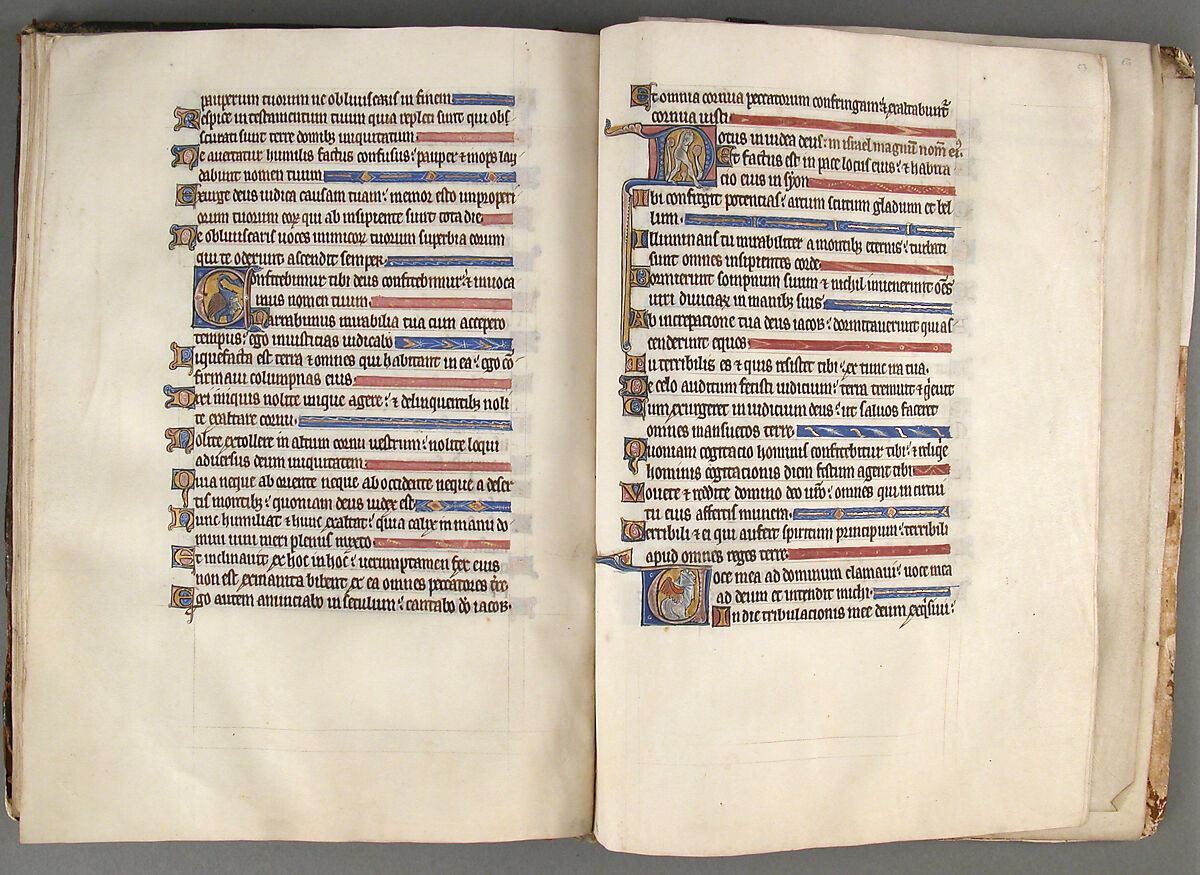 pauperum tuorum ne obliuiscaris in finem
Respice in testamentum tuum quia repleti sunt qui obs
curati sunt terre domibz iniquitatum
Ne auertatur humilis factus confusus: pauper et inops lau
dabunt nomen tuum
Exurge deus iudica causam tuam: memor esto improperi
orum tuorum eorum qui ab insipiente sunt tota die
Ne obliuiscaris uoces inimicorum tuorum superbia eorum
qui te oderunt ascendit semper
Confitebimur tibi deus confitebimur: et inuoca
bimus nomen tuum
Narrabimus mirabilia tua cum accepero
tempus: ego iniusticias iudicabo
Liquefacta est terra et omnes qui habitant in ea: ego cō
firmaui columpnas eius
Dixi iniquis nolite inique agere: et delinquentibz noli
te exaltare cornu
Nolite extollere in altum cornu uestrum: nolite loqui
aduersus deum iniquitatem
Quia neque ab oriente neque ab occidente neque a deser
tis montibz: quoniam deus iudex est
Hunc humiliat et hunc exaltat: quia calix in manu do
mini uini meri plenus mixto
Et inclinauit ex hoc in hoc: uerumptamen fex eius
non est exinanita bibent ex ea omnes peccatores tr̄e
Ego autem annunciabo in seculum: cantabo dō iacob
Et omnia cornua peccatorum confringam: et exaltabunt᷑
cornua iusti
Notus in iudea deus: in israel magnum nom̄ ei᷒
Et factus est in pace locus eius: et habita
cio eius in syon
Ibi confregit potencias: arcum scutum gladium et bel
lum
Illuminans tu mirabiliter a montibz eternis: turbati
sunt omnes insipientes corde
Dormierunt sompnum suum et nichil inuenerunt om̄s
uiri diuiciarum in manibz suis
Ab increpacione tua deus iacob: dormitauerunt qui as
cenderunt equos
Tu terribilis es et quis resistet tibi: ex tunc ira tua
De celo auditum fecisti iudicium: terra tremuit et q̇euit
Cum exurgeret in iudicium deus: ut saluos faceret
omnes mansuetos terre
Quoniam cogitacio hominis confitebitur tibi: et reliq̇e
hominis cogitacionis diem festum agent tibi
Vouete et reddite domino deo ur̄o: omnes qui in circui
tu eius affertis munera
Terribili et ei qui aufert spiritum principum: terribili
apud omnes reges terre
Voce mea ad dominum clamaui: uoce mea
ad deum et intendit michi
In die tribulacionis mee deum exq̇siui: